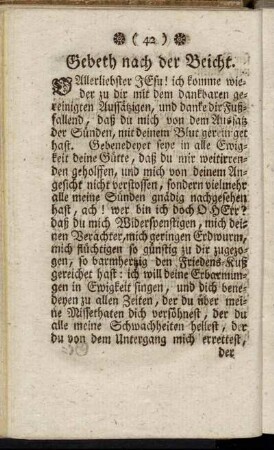 ( 42 )
Gebeth nach der Beicht.
O Allerliebster JEsu! ich komme wie-
der zu dir mit dem danckbaren ge-
reinigten Aussätzigen, und dancke dir Fuß-
fallend, daß du mich von dem Aussatz
der Sünden, mit deinem Blut gereiniget
hast. Gebenedeyet seye in alle Ewig-
keit deine Gütte, daß du mir weitirren-
den geholffen, und mich von deinem An-
gesicht nicht verstossen, sondern vielmehr
alle meine Sünden gnädig nachgesehen
hast, ach! wer bin ich doch O HErr?
daß du mich Widerspenstigen, mich dei-
nen Verächter, mich geringen Erdwurm,
mich flüchtigen so günstig zu dir zugezo-
gen, so barmhertzig den Friedens-Kuß
gereichet hast: ich will deine Erbarmun-
gen in Ewigkeit singen, und dich bene-
deyen zu allen Zeiten, der du über mei-
ne Missethaten dich versöhnest, der du
alle meine Schwachheiten heilest, der
du von dem Untergang mich errettest,
der